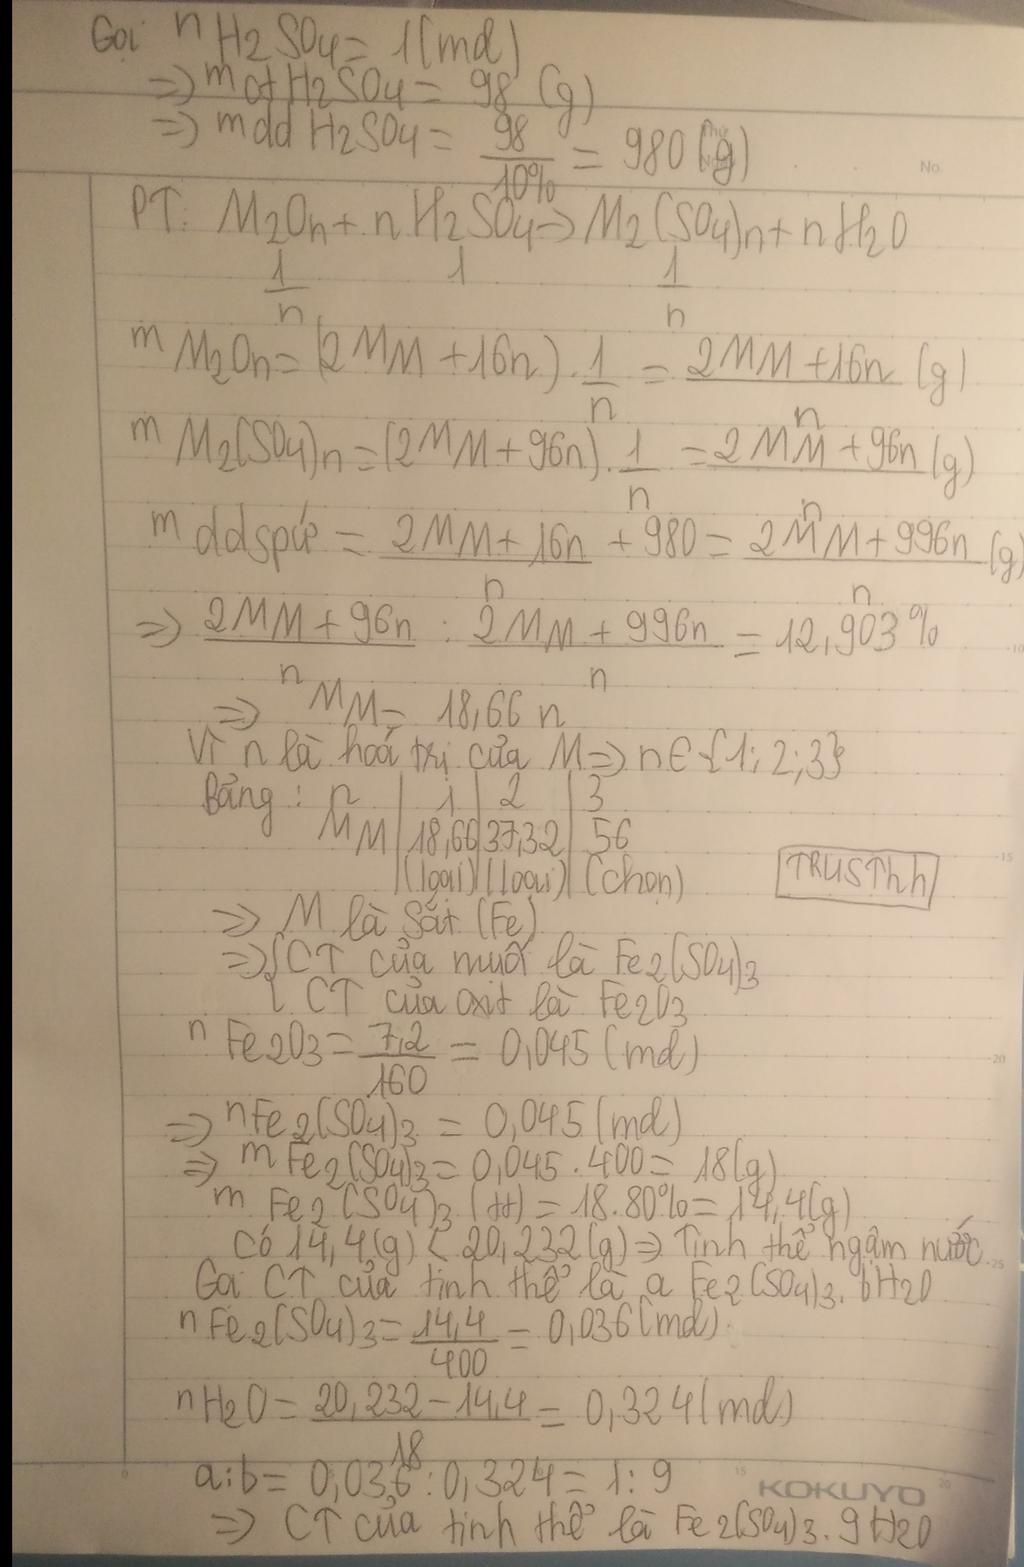 Gọi nH2SO4 = 1(mol)
=> mctH2SO4 = 98 (g)
=> mdd H2SO4 = 98/10% = 980(g)
No.
PT: M2On + nH2SO4 -> M2(SO4)n + nH2O
1/n 1 1/n
mM2On = (2MM + 16n) . 1/n = (2MM + 16n)/n (g)
mM2(SO4)n = (2MM + 96n) . 1/n = (2MM + 96n)/n (g)
mddspứ = (2MM + 16n)/n + 980 = (2MM + 996n)/n (g)
=> (2MM + 96n)/n : (2MM + 996n)/n = 12,903%
=> MM = 18,66 n
Vì n là hoá trị của M => n∈{1; 2; 3}
Bảng: n | 1 | 2 | 3
MM | 18,66 | 37,32 | 56
| (loại) | (loại) | (chọn)
TRUSThh
=> M là Sắt (Fe)
=> { CT của muối là Fe2(SO4)3
CT của oxit là Fe2O3
nFe2O3 = 7,2/160 = 0,045(mol)
=> nFe2(SO4)3 = 0,045(mol)
=> mFe2(SO4)3 = 0,045.400 = 18(g)
mFe2(SO4)3 (tt) = 18.80% = 14,4(g)
Có 14,4(g) < 20,232(g) => Tinh thể ngậm nước
Gọi CT của tinh thể là a Fe2(SO4)3. bH2O
nFe2(SO4)3 = 14,4/400 = 0,036(mol)
nH2O = (20,232 - 14,4)/18 = 0,324(mol)
a:b = 0,036 : 0,324 = 1:9
KOKUYO
=> CT của tinh thể là Fe2(SO4)3. 9H2O